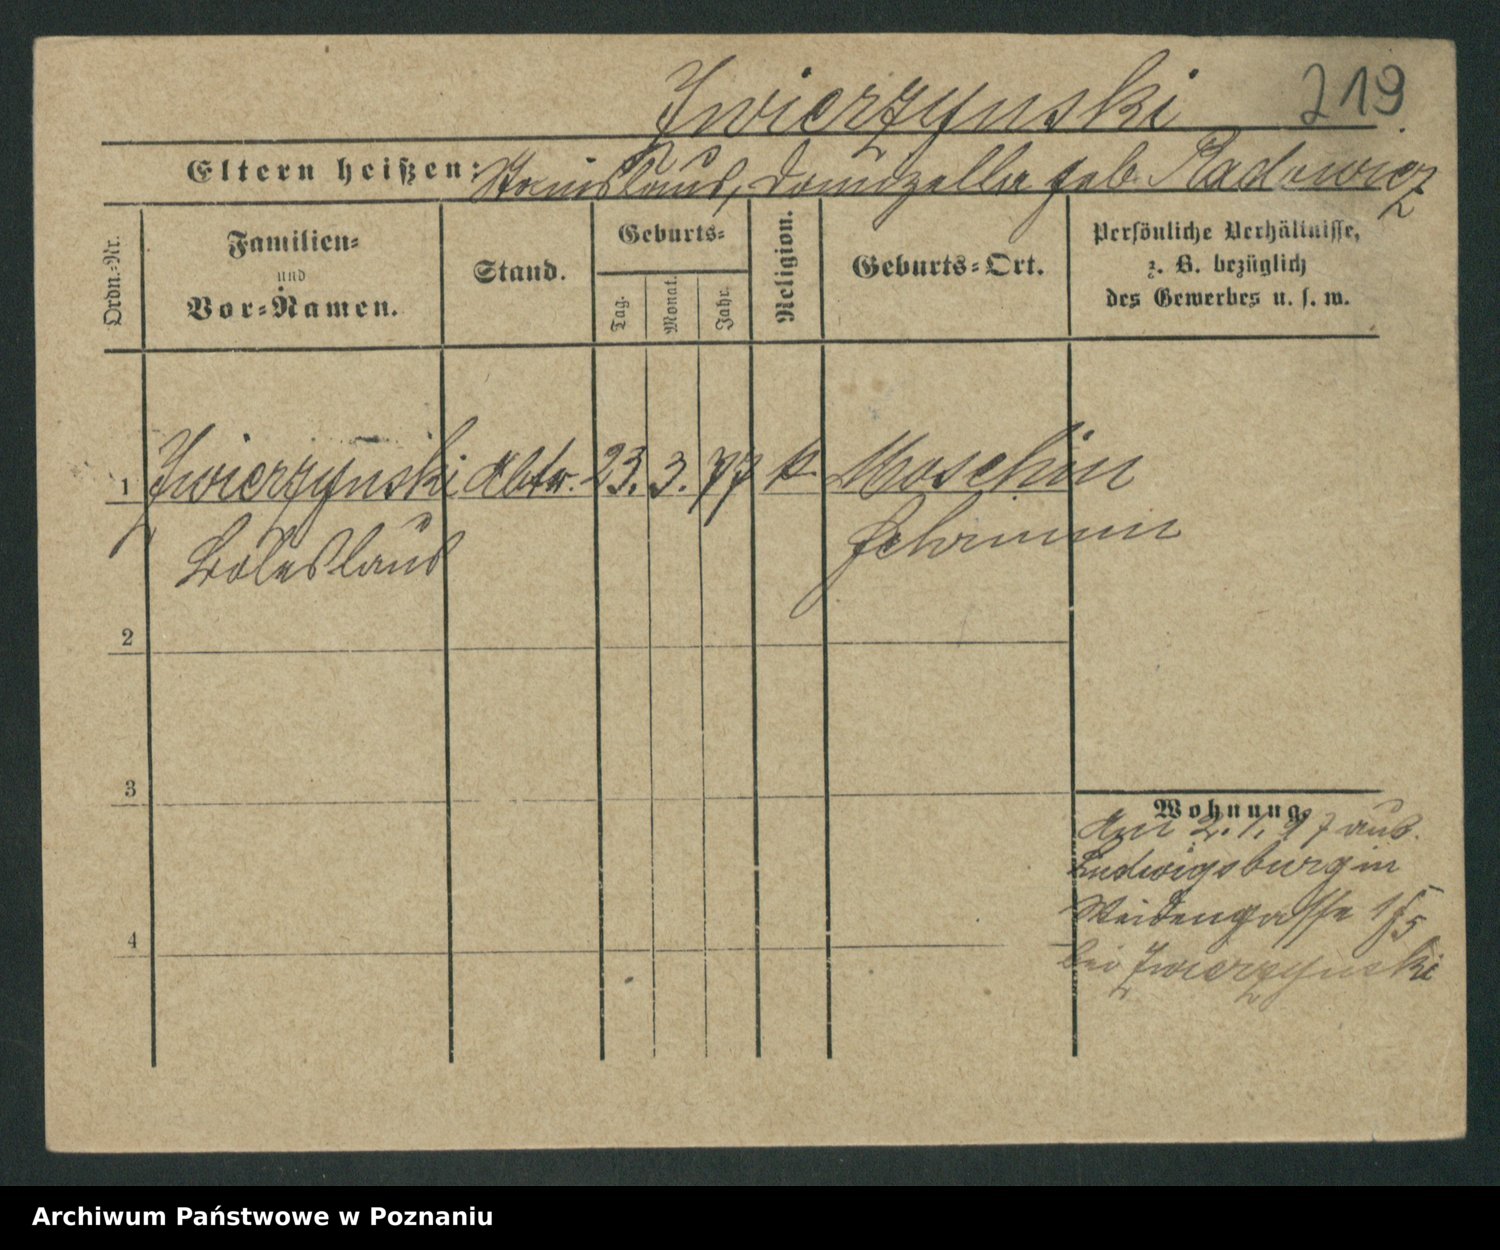 Zwierzynski 219
Eltern heißen: Stanislaus, geb. Radewicz
Ordn.-Nr.
Familien-
und
Vor-Namen.
Stand.
Geburts-
Tag.
Monat.
Jahr.
Religion.
Geburts-Ort.
Persönliche Verhältnisse,
z. B. bezüglich
des Gewerbes u. s. w.
1 Zwierzynski 23. 3. 77 k. Moschin
Boleslaus Schrimm
2
3
4
Wohnung.
2. 1. 97 aus
Ludwigsburg in
Weidengasse
bei Zwierzynski
Archiwum Państwowe w Poznaniu